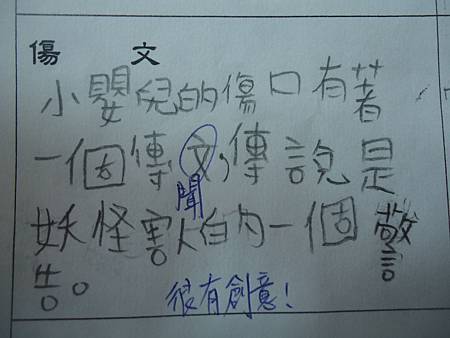 傷 文
小嬰兒的傷口有著
一個傳文,傳說是
聞
妖怪害人的一個警
告。
很有創意!